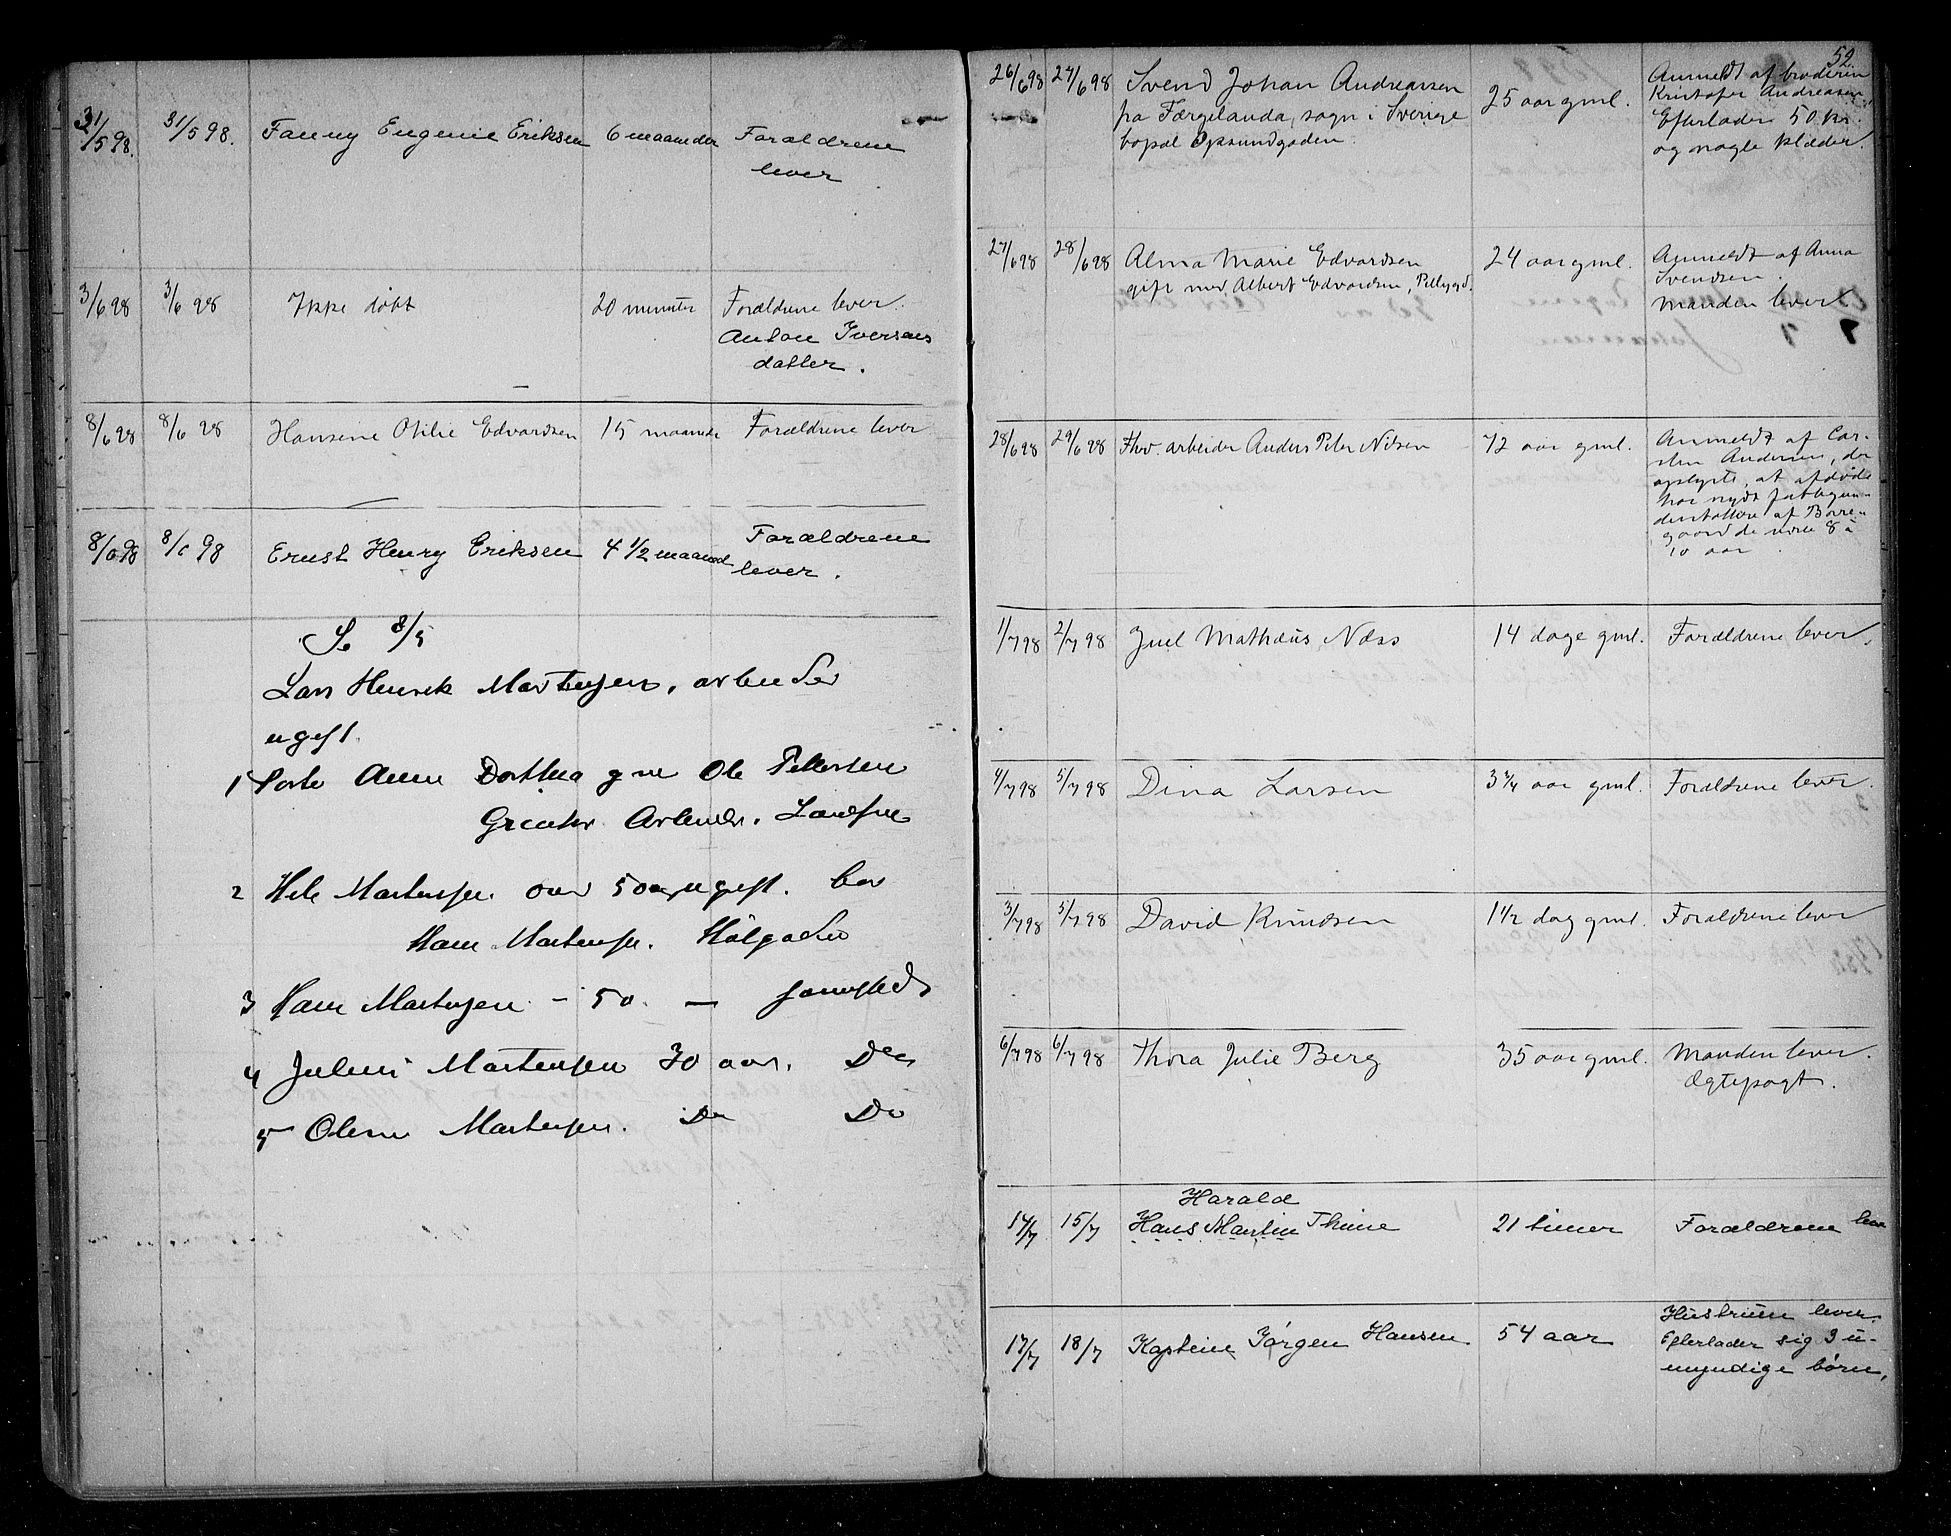 31/5 98. 31/5 98. Fanny Eugenie Eriksen 6 maaneder Forældrene
lever
3/6 98 3/6 98 Ikke döbt 20 minuter Forældrene lever.
Anton Iversens
datter.
8/6 98 8/6 98 Hansine Otilie Edvardsen 15 maaneder Forældrene lever
8/6 98 8/6 98 Ernst Henry Eriksen 4 1/2 maaned Forældrene
lever.
Se 8/5
Lars Henrik Martensen, arbeider
ugift.
1 Anne Dorthea gm Ole Pettersen
Arbeider.
2 Martensen over 50 aar ugift. bor
Hans Martensen.
3 Hans Martensen – 50. — sammesteds
4 Julius Martensen 30 aar. Do
5 Martensen. Do Do
52.
26/6 98 27/6 98 Svend Johan Andreassen 25 aar gml. Anmeldt af broderen
fra Færgelanda, sogn i Sverige Kristofer Andreasen
bopæl Opsundgaden. Efterlader 50 kr.
og nogle klæder.
27/6 98 28/6 98 Alma Marie Edvardsen 24 aar gml. Anmeldt af Anna
gift med Albert Edvardsen, Svendsen.
Manden lever.
28/6 98 29/6 98 Fhv. arbeider Anders Peter Nilsen 72 aar gml. Anmeldt af Car-
sten Andersen, der
oplyste, at afdöde
har nydt fattigun-
derstöttelse af Borre-
gaard de sidste 8 à
10 aar.
1/7 98 2/7 98 Juel Mathæus Næss 14 dage gml. Forældrene lever.
4/7 98 5/7 98 Dina Larsen 3 3/4 aar gml. Forældrene lever.
3/7 98 5/7 98 David Knudsen 1 1/2 dag gml. Forældrene lever
6/7 98 6/7 98 Thora Julie Berg 35 aar gml. Manden lever.
Ægtepagt.
Harald
14/7 15/7 Hans Martin Thune 21 timer Forældrene lever
17/7 18/7 Kaptein Jörgen Hansen 54 aar Hustruen lever.
Efterlader sig 3 u-
myndige börn.